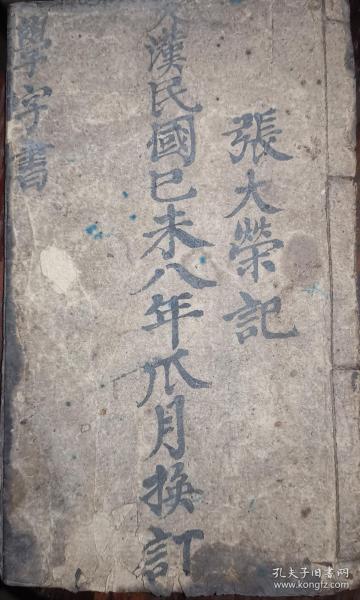 張大榮記
漢民國己未八年瓜月換訂
學字書
孔夫子旧书网
www.kongfz.com